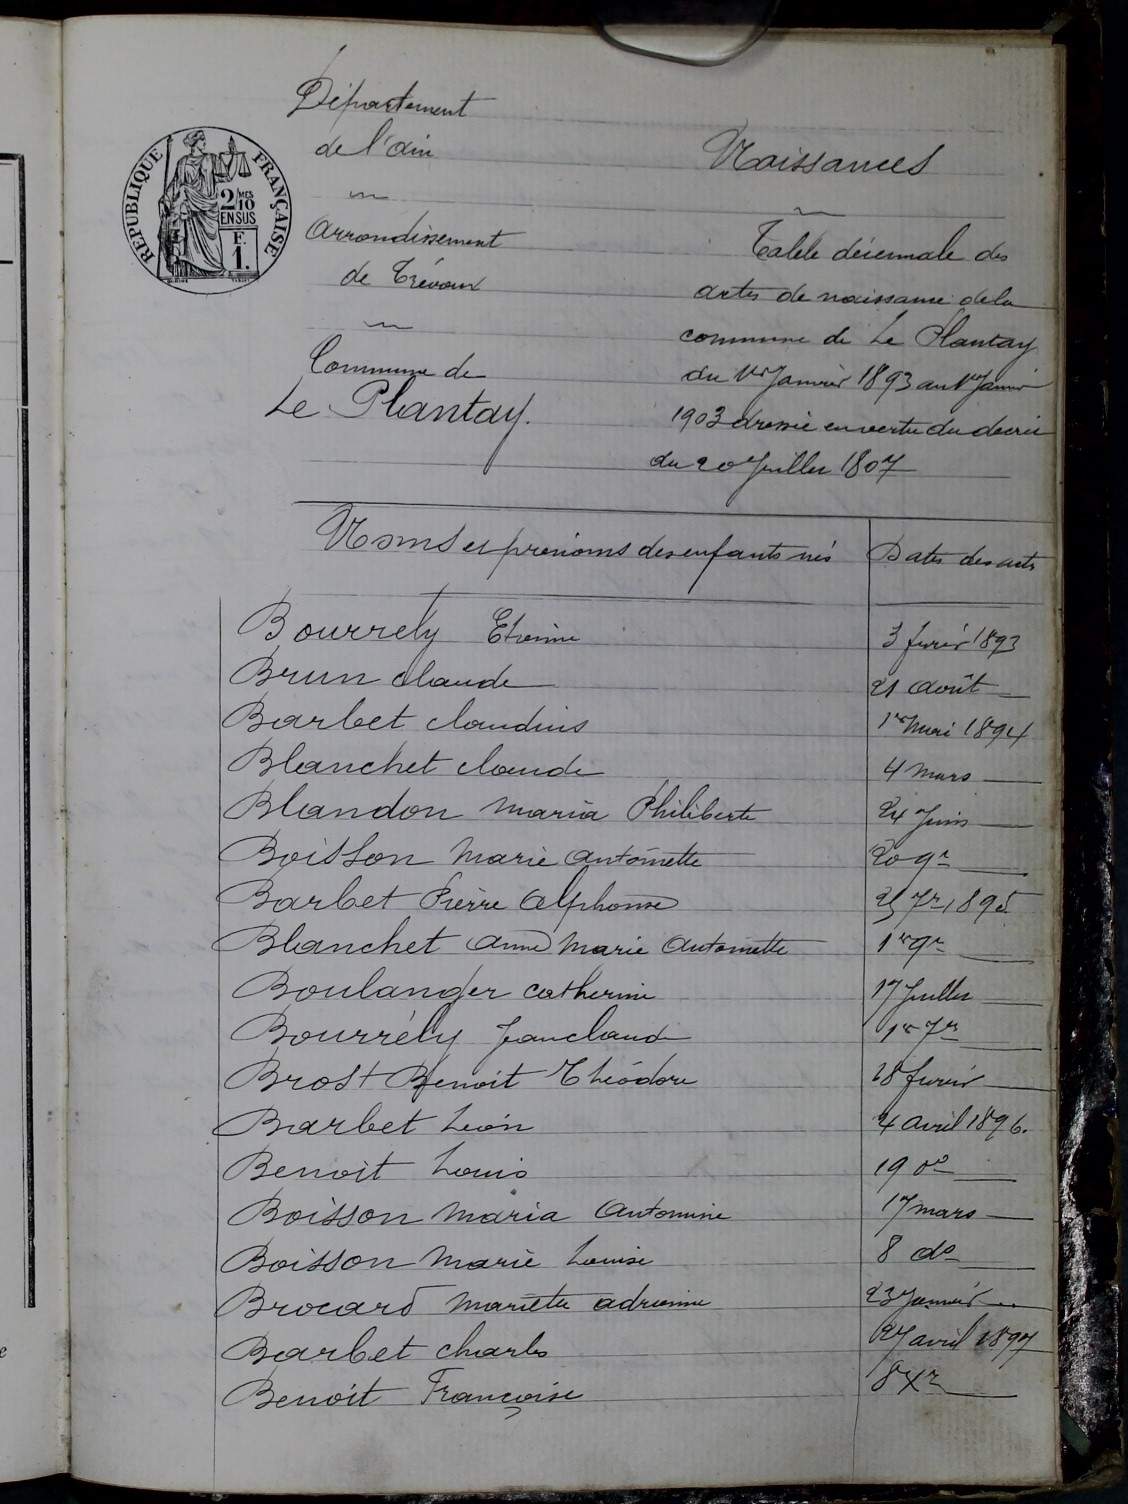 Département
de l'ain
Arrondissement
de Trévoux
Commune de
Le Plantay.
REPUBLIQUE FRANÇAISE
2/10 MES
EN SUS
F.
1.
Naissances
Table décennale des
actes de naissance de la
commune de Le Plantay
du 1er Janvier 1893 au 1er Janvier
1903 dressée en vertu du décret
du 20 Juillet 1807
Noms et prénoms des enfants nés Dates des actes
Bourrely Etienne 3 février 1893
Brun claude 21 août
Barbet claudius 1er Mai 1894
Blanchet claude 4 mars
Blandon maria Philiberte 24 Juin
Boisson Marie antoinette 20 9r
Barbet Pierre Alphonse 25 7r 1895
Blanchet anne Marie antoinette 1er 9r
Boulanger catherine 17 Juillet
Bourrély Jean claude 1er 7r
Brost Benoit Théodore 28 février
Barbet Léon 4 avril 1896.
Benoit Louis 19
Boisson Maria antonine 17 mars
Boisson Marie Louise 8 do
Brocard Mariette adrienne 23 Janvier
Barbet charles 27 avril 1897
Benoit Françoise 8 Xr